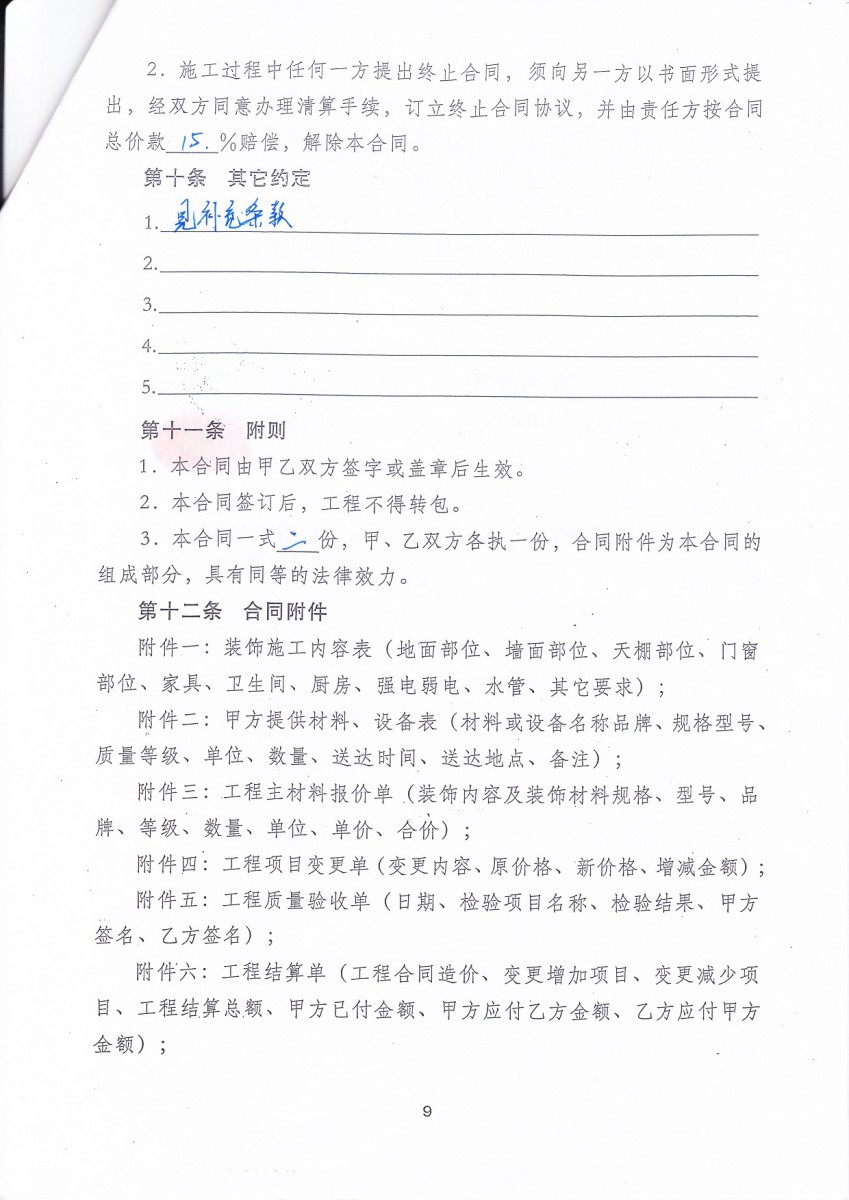 2. 施工过程中任何一方提出终止合同，须向另一方以书面形式提
出，经双方同意办理清算手续，订立终止合同协议，并由责任方按合同
总价款 15. %赔偿，解除本合同。
第十条 其它约定
1. 见补充条款
2.
3.
4.
5.
第十一条 附则
1. 本合同由甲乙双方签字或盖章后生效。
2. 本合同签订后，工程不得转包。
3. 本合同一式二份，甲、乙双方各执一份，合同附件为本合同的
组成部分，具有同等的法律效力。
第十二条 合同附件
附件一：装饰施工内容表（地面部位、墙面部位、天棚部位、门窗
部位、家具、卫生间、厨房、强电弱电、水管、其它要求）；
附件二：甲方提供材料、设备表（材料或设备名称品牌、规格型号、
质量等级、单位、数量、送达时间、送达地点、备注）；
附件三：工程主材料报价单（装饰内容及装饰材料规格、型号、品
牌、等级、数量、单位、单价、合价）；
附件四：工程项目变更单（变更内容、原价格、新价格、增减金额）；
附件五：工程质量验收单（日期、检验项目名称、检验结果、甲方
签名、乙方签名）；
附件六：工程结算单（工程合同造价、变更增加项目、变更减少项
目、工程结算总额、甲方已付金额、甲方应付乙方金额、乙方应付甲方
金额）；
9